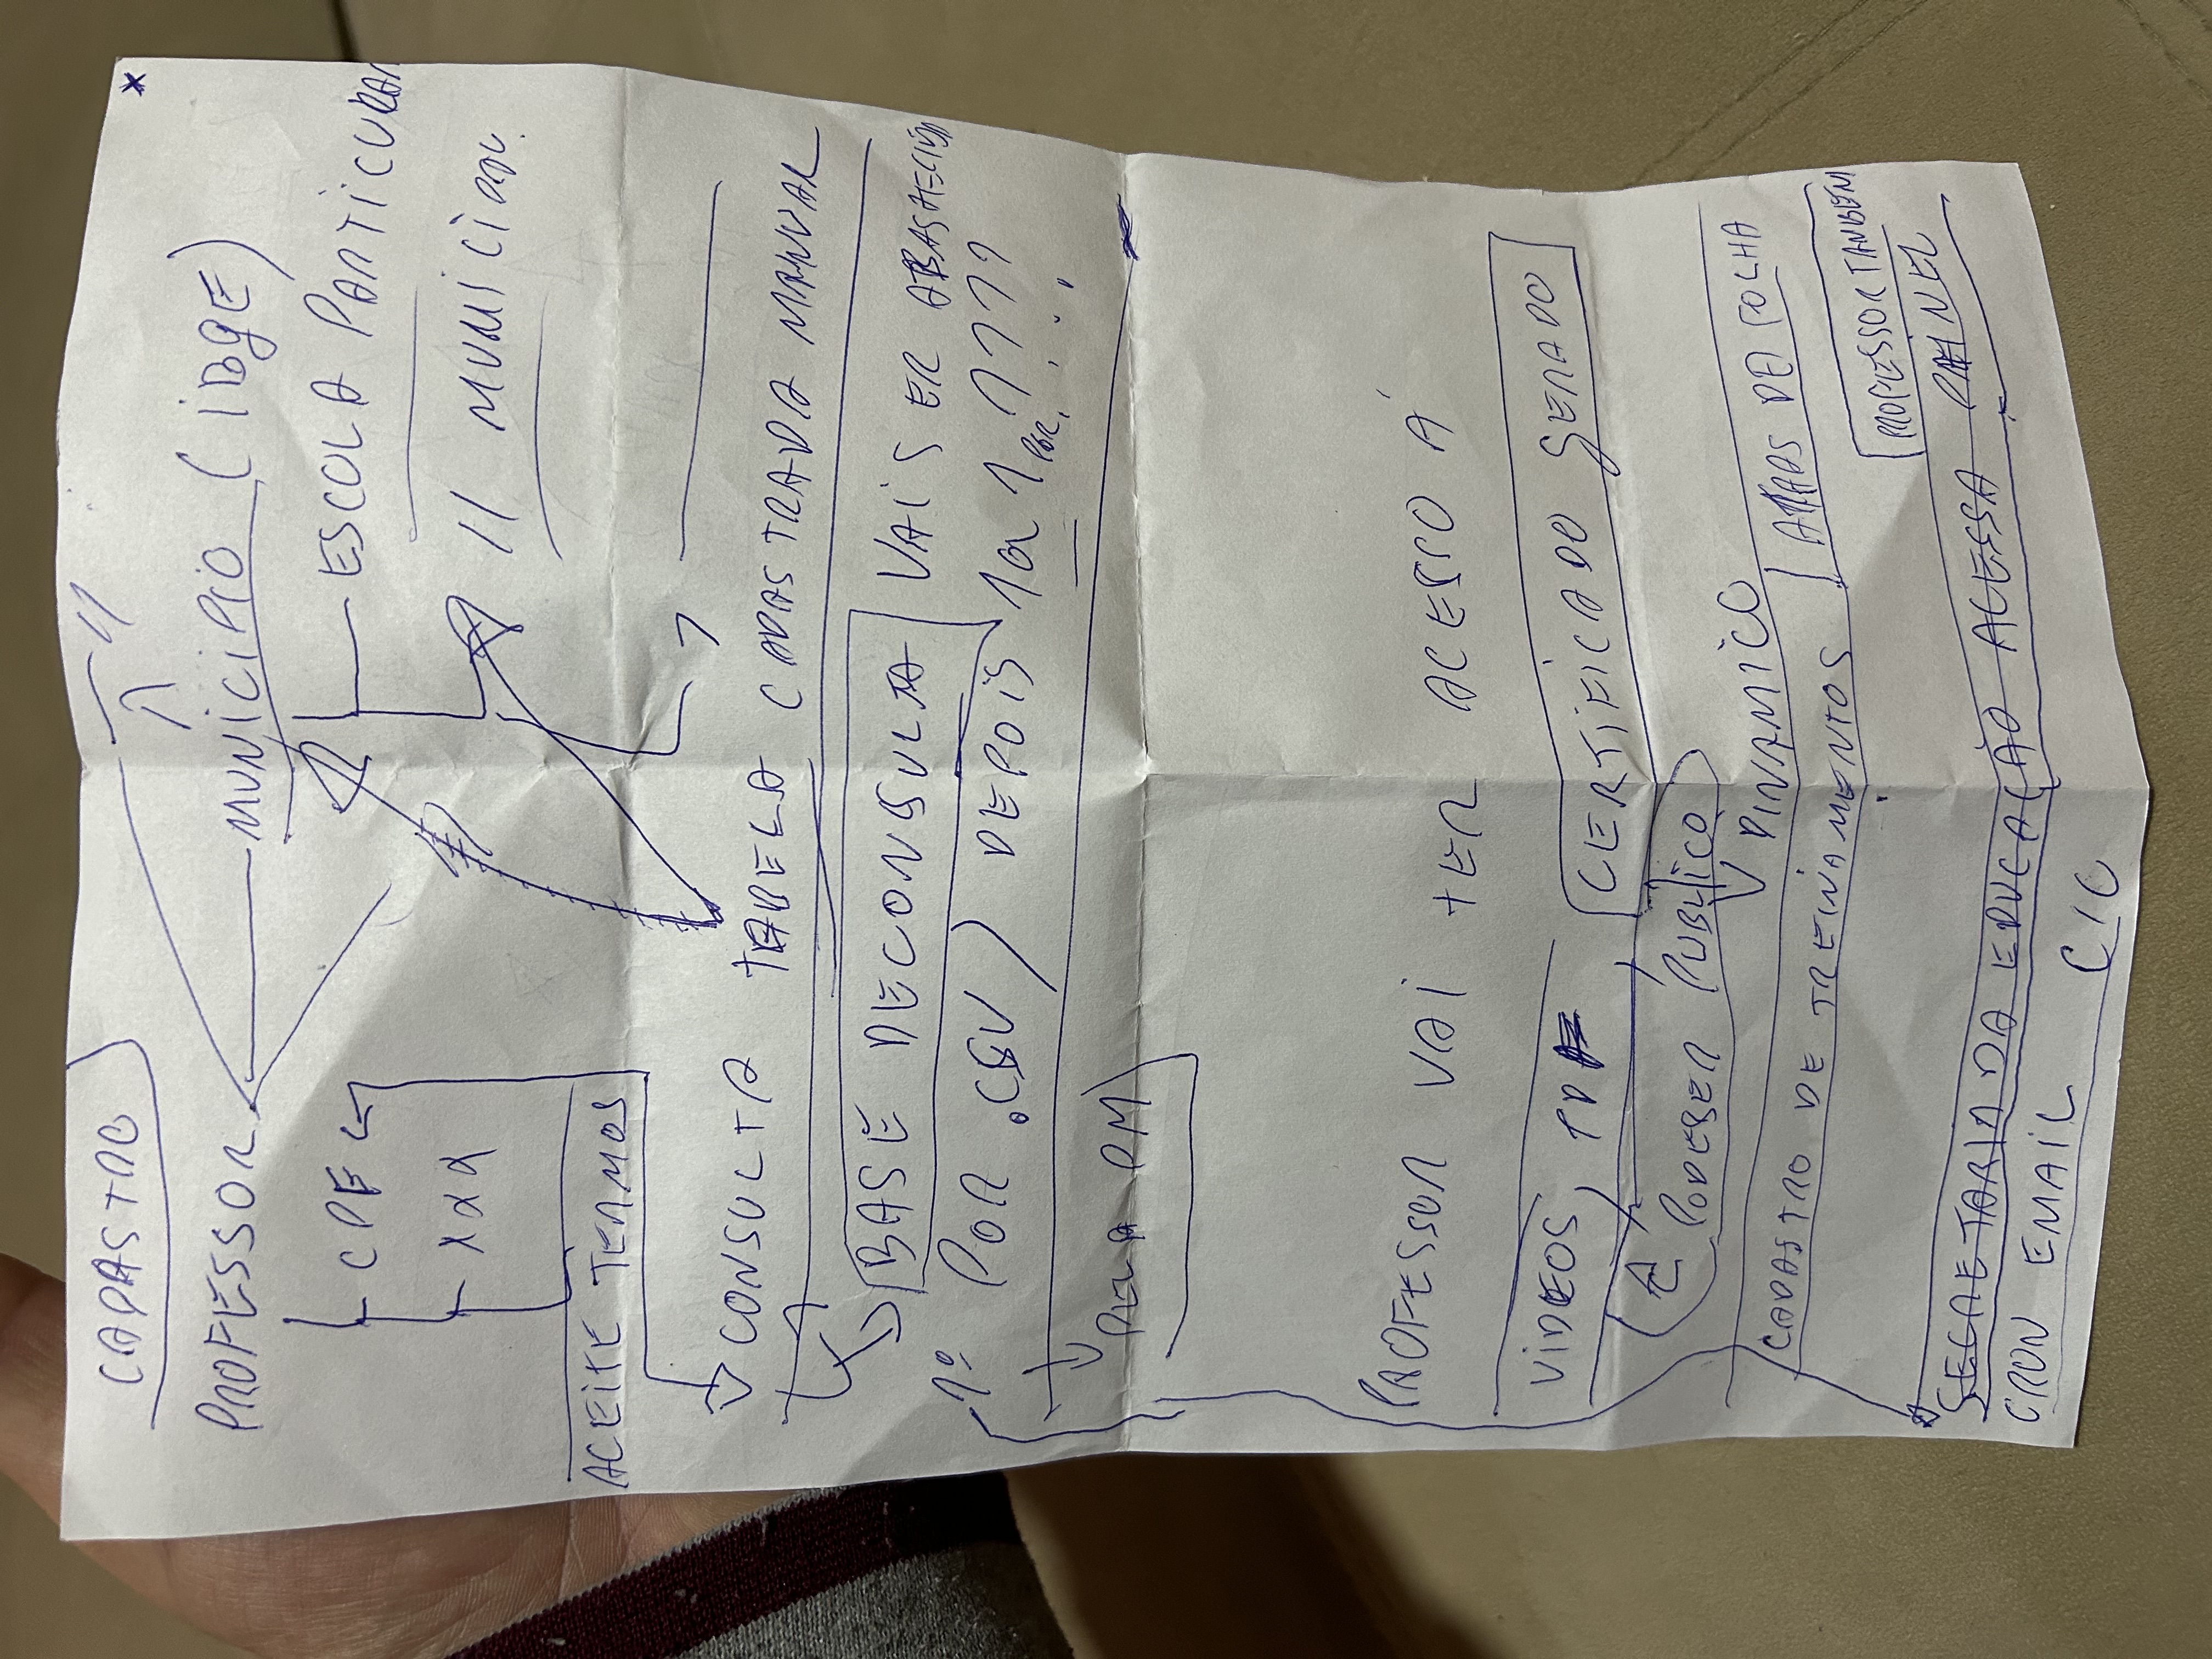 CADASTRO
PROFESSOR MUNICIPIO (IBGE)
CPF ESCOLA PARTICURAR
XXX // MUNICIPAL
ACEITE TERMOS
CONSULTA TABELA CADASTRADA MANUAL
BASE DE CONSULTA VAI SER ABASTECIDA
1º POR .CSV DEPOIS 1 a 1 POR ????
PELA PM
PROFESSOR VAI TER ACESSO Á
VIDEOS, PDF, CERTIFICADO GERADO
PODE SER PUBLICO
DINAMICO
CADASTRO DE TREINAMENTOS ATRAS DA FOLHA
PROFESSOR TANBEM
SECRETARIA DA EDUCAÇÃO ACESSA PAINEL
CRON EMAIL C/C